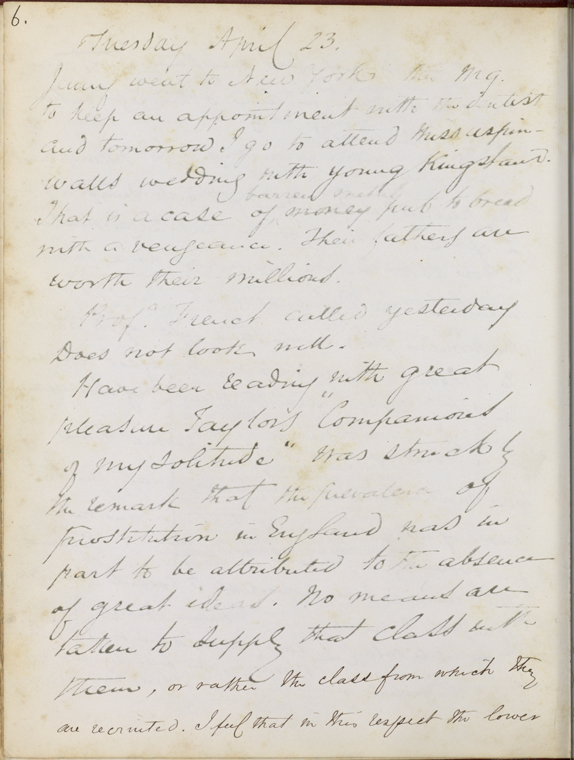 6.
Tuesday April 23.
Jenny went to New York this Mg.
to keep an appointment with the dentist
and tomorrow I go to attend Miss Aspin-
walls wedding with young Kingsland.
barren metal
That is a case of money put to breed
with a vengeance. Their fathers are
worth their millions.
Prof. French called yesterday
Does not look well.
Have been reading with great
pleasure Taylor's "Companions
of my Solitude" was struck by
the remark that the prevalence of
prostitution in England was in
part to be attributed to the absence
of great ideas. No means are
taken to supply that class with
them, or rather the class from which they
are recruited. I feel that in this respect the lower